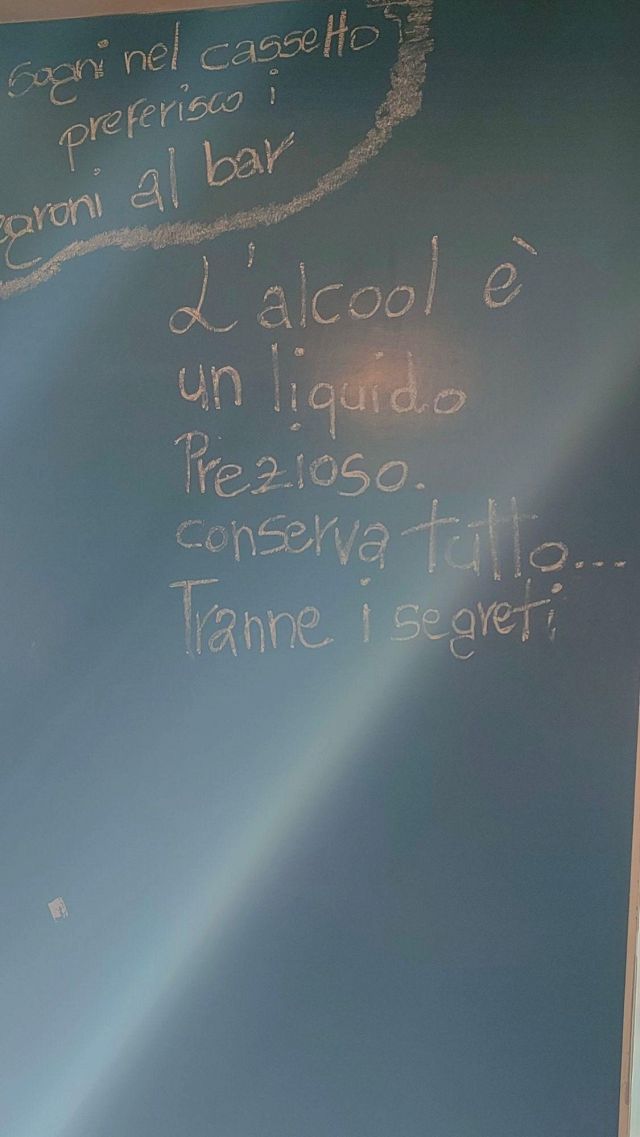 Sogni nel cassetto
preferisco i
egroni al bar
L'alcool è
un liquido
Prezioso.
conserva tutto...
Tranne i segreti